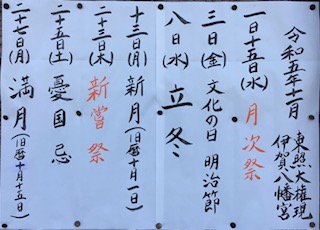 令和五年十一月
東照大権現
伊賀八幡宮
一日十五日(水) 月次祭
三日(金) 文化の日 明治節
八日(水) 立冬
十三日(月) 新月(旧暦十月一日)
二十三日(木) 新嘗祭
二十五日(土) 憂国忌
二十七日(月) 満月(旧暦十月十五日)